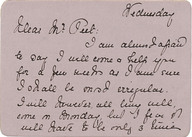 Wednesday
Dear Mr Peet
I am almost afraid
to say I will come & help you
for a few weeks as I am sure
I shall be most irregular.
I will however all being well,
come on Monday but I fear it
will have to be only 3 times